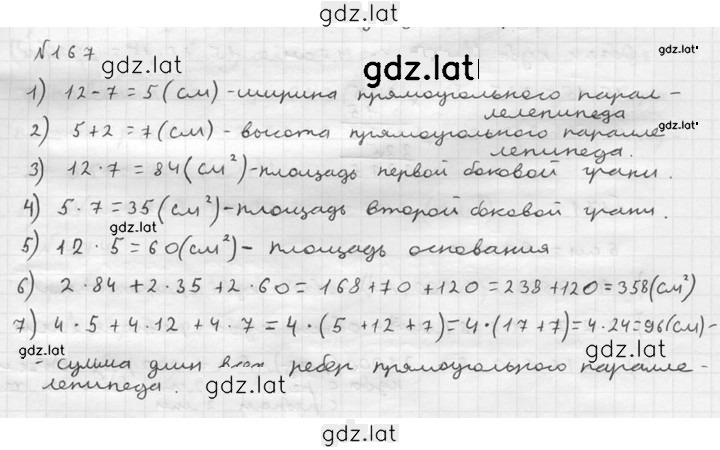 gdz.lat
№167
gdz.lat
gdz.lat
gdz.lat
1) 12-7=5(см)-ширина прямоугольного парал-
лелепипеда
gdz.lat
2) 5+2=7(см)-высота прямоугольного паралле
лепипеда.
3) 12·7=84(см²)-площадь первой боковой грани.
gdz.lat
4) 5·7=35(см²)-площадь второй боковой грани.
gdz.lat
5) 12·5=60(см²)- площадь основания
6) 2·84+2·35+2·60=168+70+120=238+120=358(см²)
7) 4·5+4·12+4·7=4·(5+12+7)=4·(17+7)=4·24=96(см)-
gdz.lat
gdz.lat
- сумма длин ребер прямоугольного паралле-
лепипеда.
gdz.lat
gdz.lat